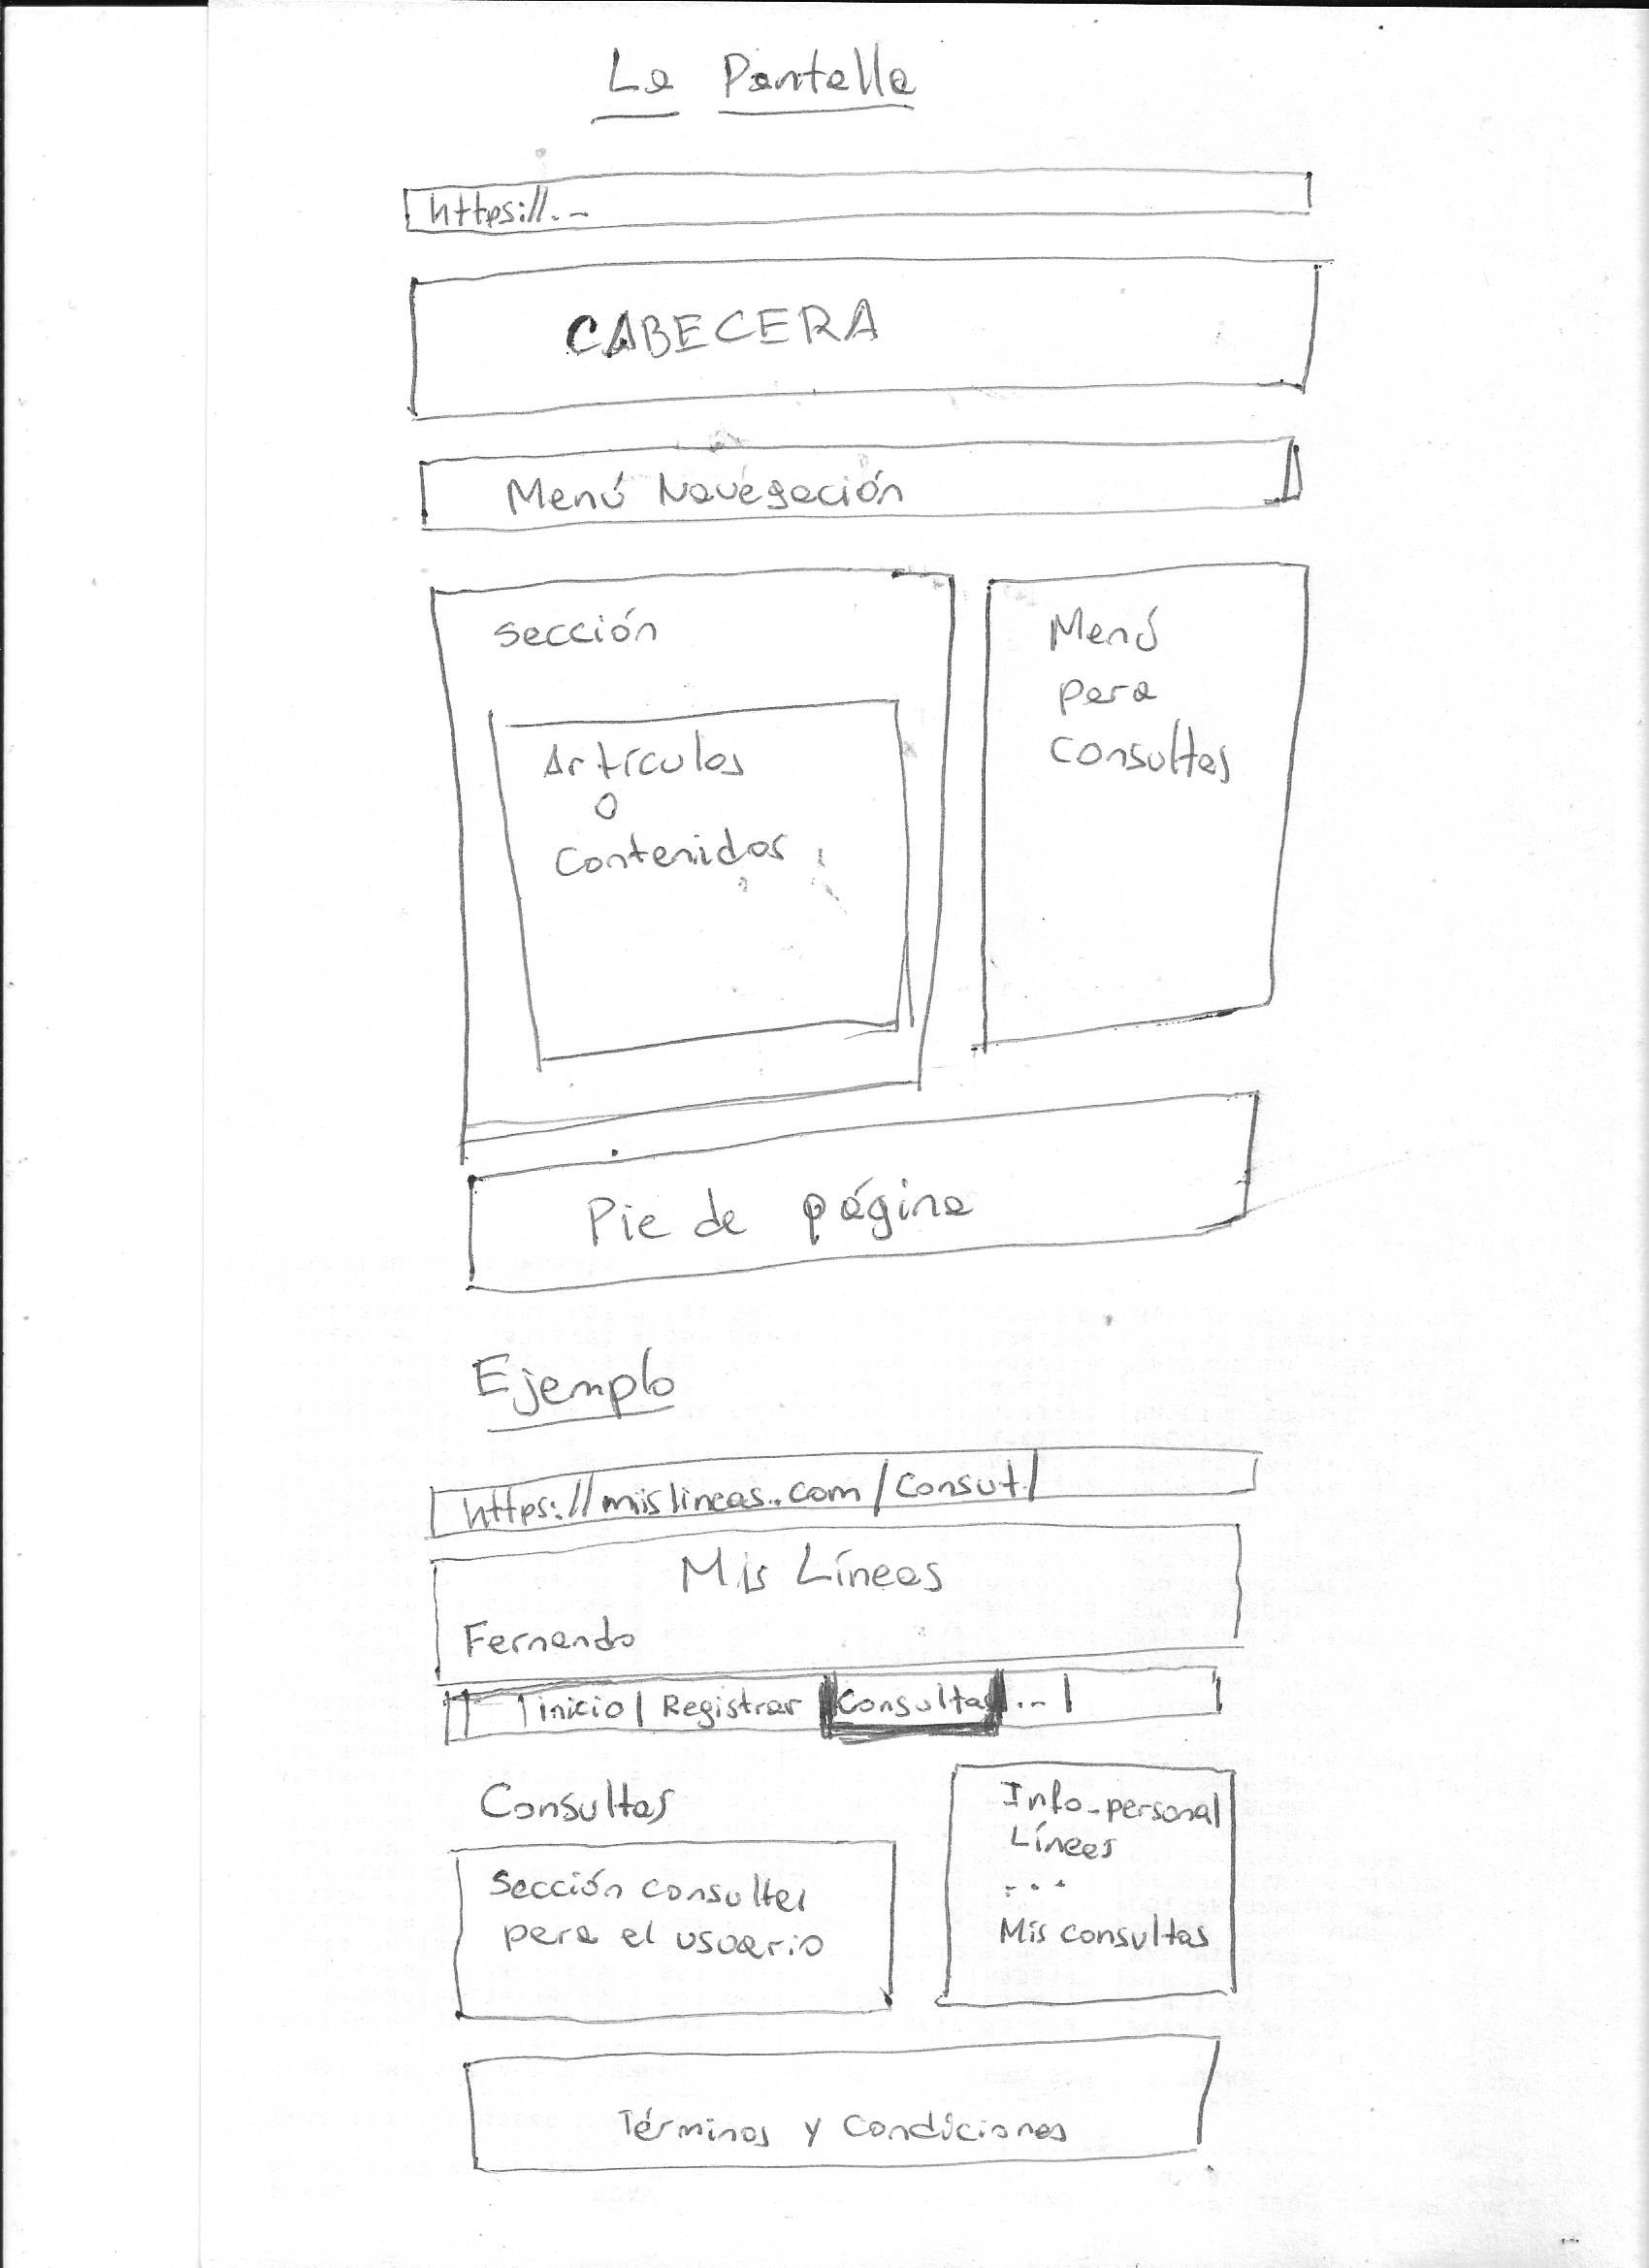 La Pantalla
https://...
CABECERA
Menú Navegación
Sección
Artículos
o
Contenidos
Menú
para
consultas
Pie de página
Ejemplo
https://mislineas.com/Consut/
Mis Líneas
Fernando
| inicio | Registrar | Consultas | ... |
Consultas
Sección consultas
para el usuario
Info-personal
Líneas
...
Mis consultas
Términos y Condiciones